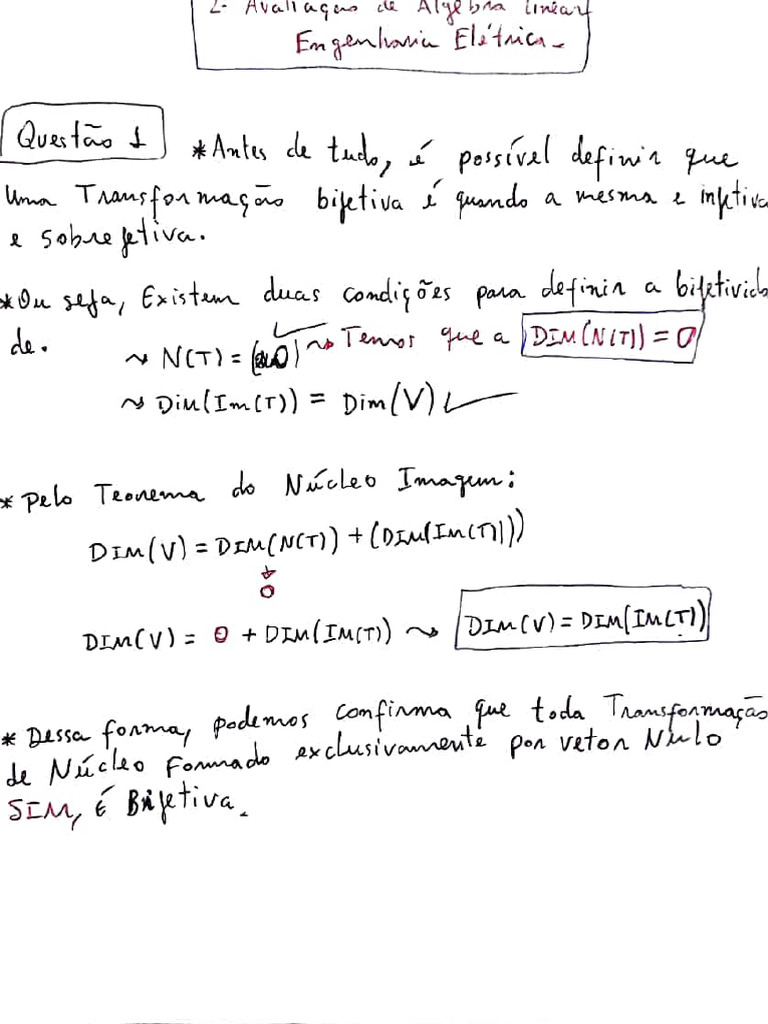 2- Avaliação de Álgebra linear
Engenharia Elétrica.
Questão 1 *Antes de tudo, é possível definir que
Uma Transformação bijetiva é quando a mesma e injetiva
e sobrejetiva.
*Ou seja, Existem duas condições para definir a bijetivida
de.
~> N(T) = (0) ~> Temos que a DIM(N(T)) = 0
~> Dim(Im(T)) = Dim(V)
* Pelo Teorema do Núcleo Imagem:
DIM(V) = DIM(N(T)) + (DIM(Im(T)))
0
DIM(V) = 0 + DIM(IM(T)) ~> DIM(V) = DIM(IM(T))
* Dessa forma, podemos confirma que toda Transformação
de Núcleo Formado exclusivamente por vetor Nulo
SIM, É Bijetiva.